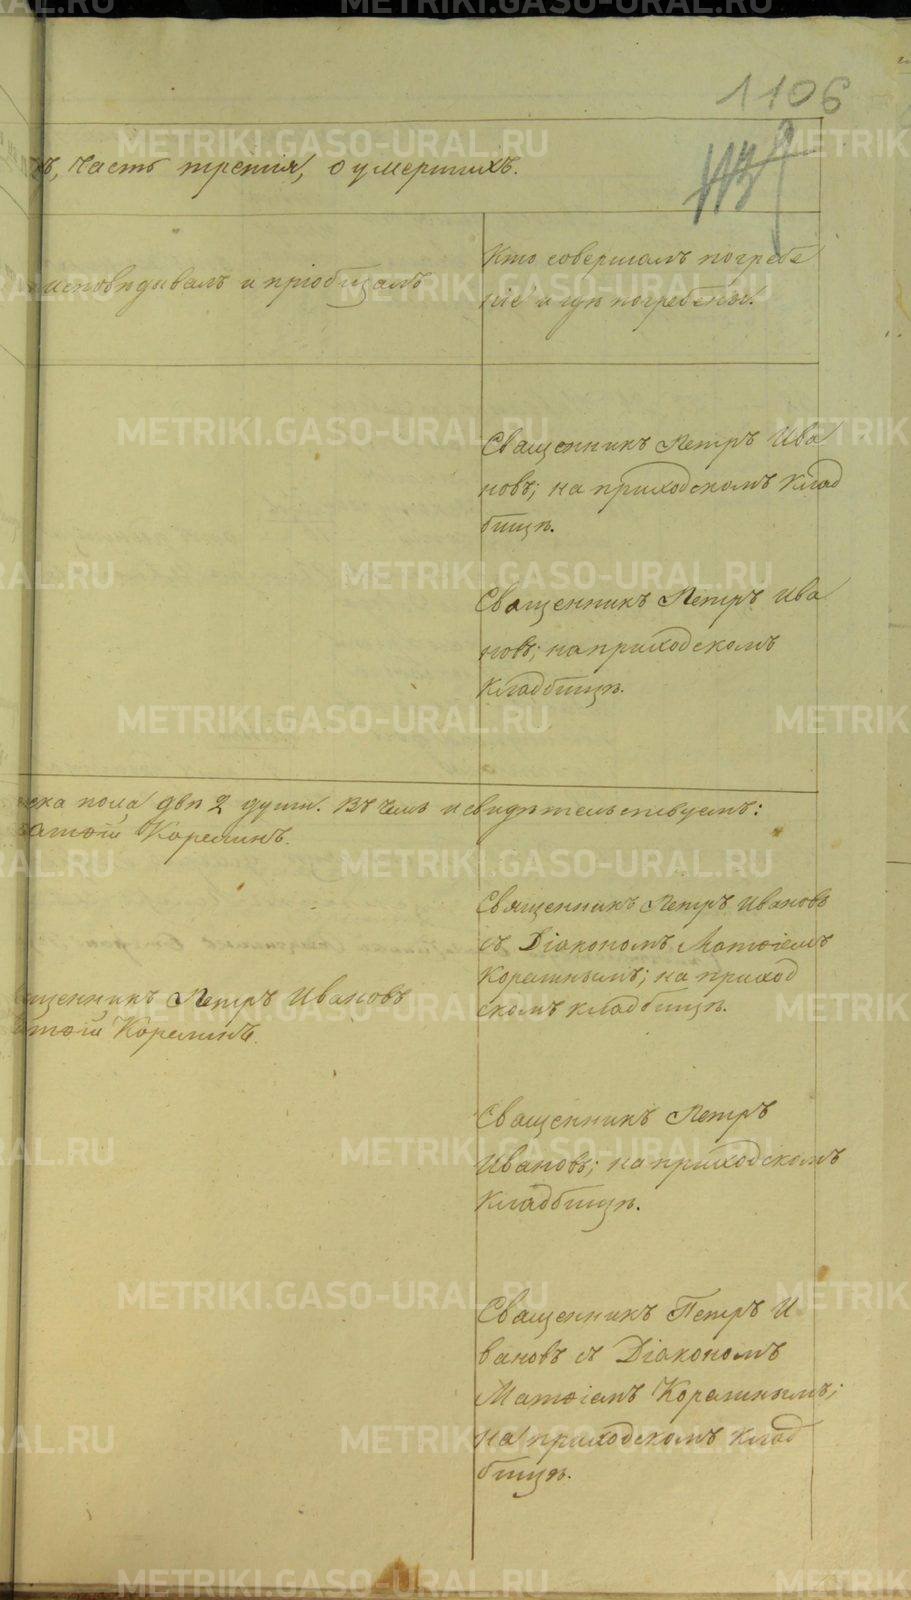 1106
ъ, Часть третія, о умершихъ.
исповѣдывалъ и пріобщалъ
Кто совершалъ погребе
ніе и гдѣ погребены.
Священникъ Петръ Ива
новъ; на приходскомъ клад
бищѣ.
Священникъ Петръ Ива
новъ; на приходскомъ
кладбищѣ.
ска пола двѣ 2 души. Въ чемъ и свидѣтельствуемъ:
атѳій Корелинъ.
Священникъ Петръ Ивановъ
съ Діакономъ Матѳіемъ
Корелинымъ; на приход
скомъ кладбищѣ.
щенникъ Петръ Ивановъ
атѳій Корелинъ.
Священникъ Петръ
Ивановъ; на приходскомъ
кладбищѣ.
Священникъ Петръ И
вановъ съ Діакономъ
Матѳіемъ Корелинымъ;
на приходскомъ клад
бищѣ.
METRIKI.GASO-URAL.RU